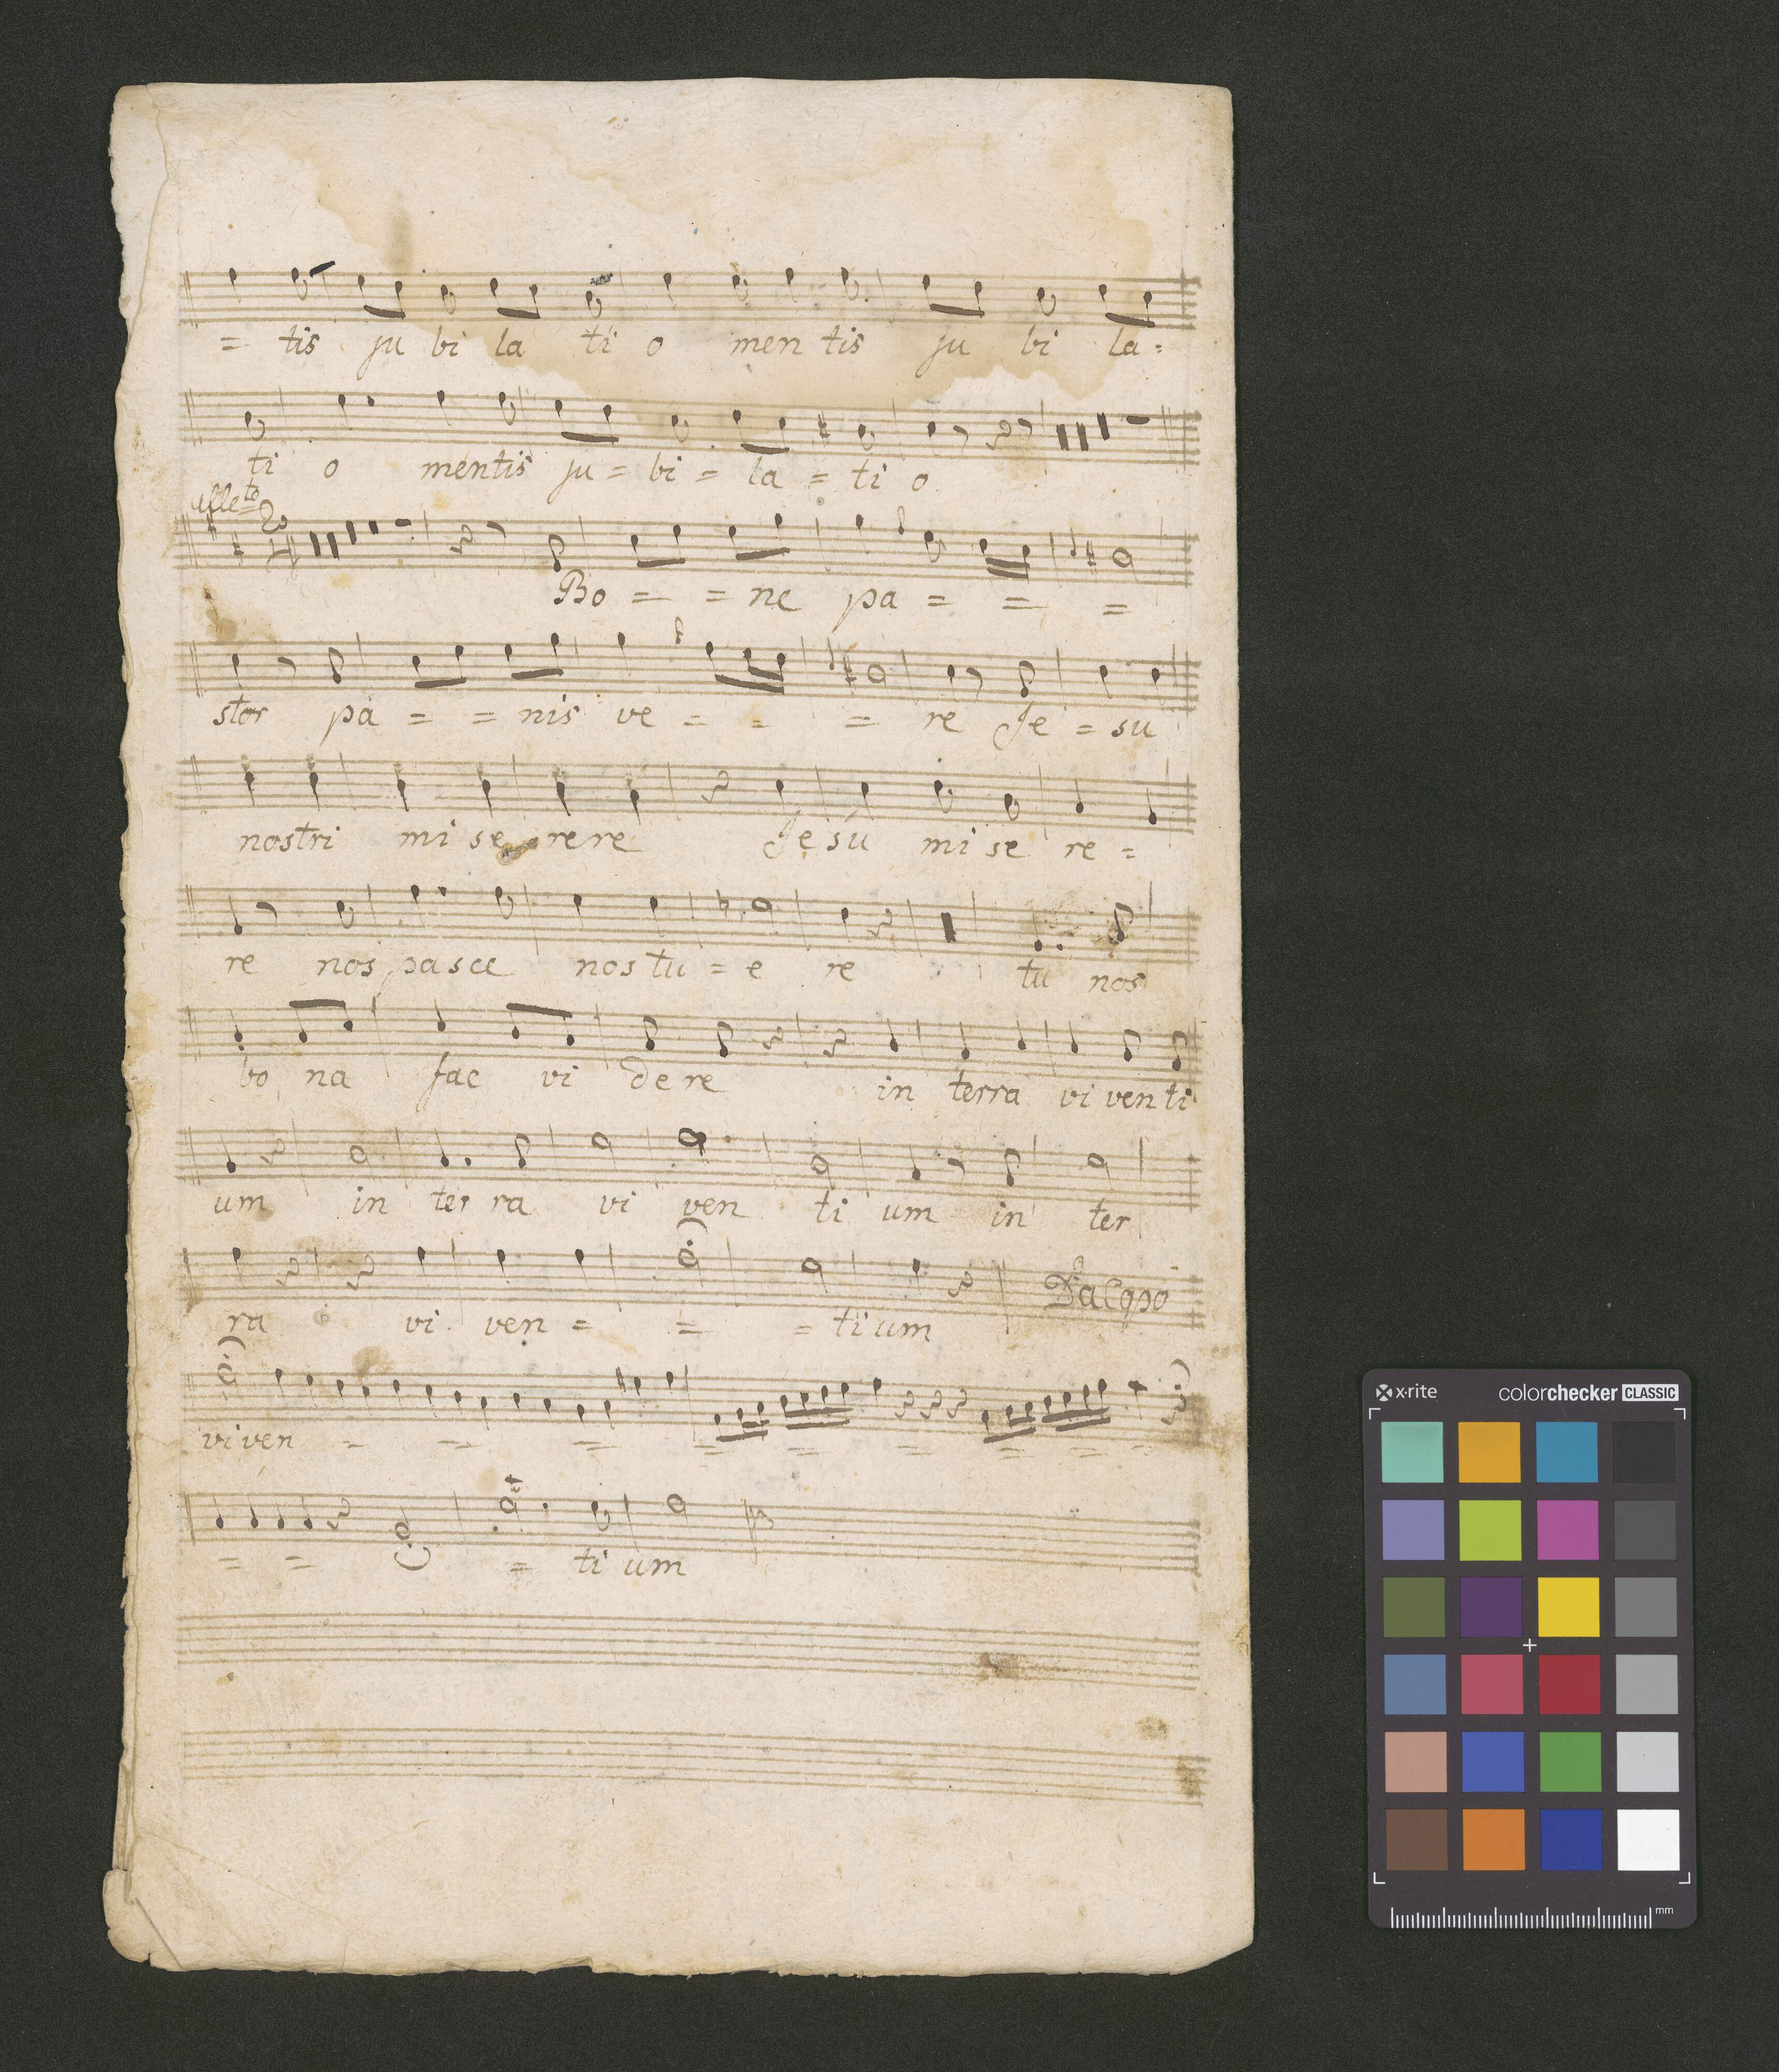 = tis ju bi la ti o men tis ju bi la =
ti o mentis ju = bi = la = ti o
Alle:to 2/4
Bo = = ne pa = = =
stor pa = = nis ve = = = re Je = su
nostri mi se rere Jesu mi se re =
re nos pasce nos tu = e re tu nos
bo na fac vi dere in terra vi venti
um in ter ra vi ven ti um in ter
ra vi ven = = = tium
viven = = = = = = = = =
= = = ti um
x-rite colorchecker CLASSIC
mm